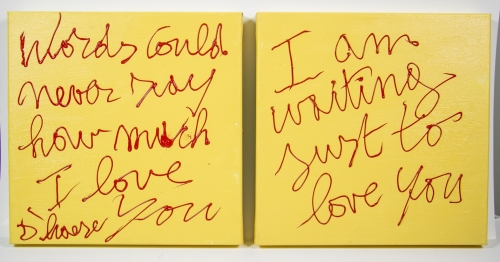 Words could
never say
how much
I love
You
I am
waiting
just to
love You